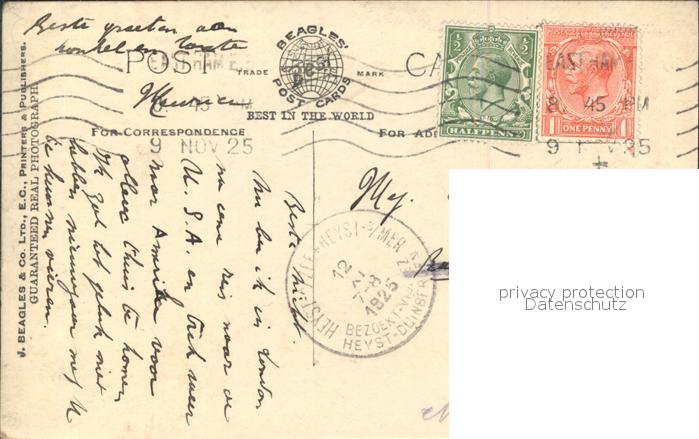 Beste groeten aan
BEAGLES'
POST CARDS
POST
TRADE
MARK
CA
EAST HAM E.6
8 45 PM
9 NOV 25
EAST HAM
8 45 PM
9 NOV 25
HALFPENNY
ONE PENNY
BEST IN THE WORLD
FOR CORRESPONDENCE
FOR AD
J. BEAGLES & CO. LTD., E.C., PRINTERS & PUBLISHERS.
GUARANTEED REAL PHOTOGRAPH
Beste
Nu ben ik in London
na eene reis naar de
U.S.A. en trek weer
naar Amerika voor
alleer thuis te komen
Ik zal het geluk niet
hebben nieuwjaar met U
te kunnen vieren.
Mej.
HEYST-S/MER
12
7-8
1925
HEYST-DUINBERG
privacy protection
Datenschutz